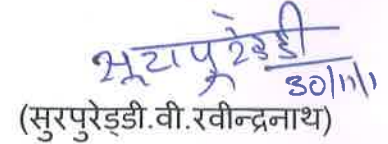 सूरपुरेड्डी
30/11/1
(सुरपुरेड्डी.वी.रवीन्द्रनाथ)